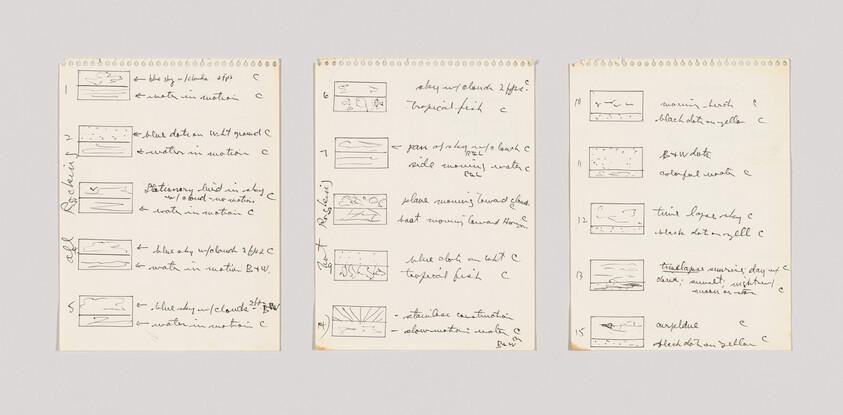 1
blue sky w/clouds 2fps C
water in motion C
2
blue dots on wht ground C
water in motion C
Stationary bird in sky
w/cloud - no motion C
water in motion C
blue sky w/clouds 2fps C
water in motion B+W.
5
blue sky w/clouds 2fps B+W
water in motion C
all Rocking
6
sky w/clouds 2fps. C
Tropical fish C
7
pan of sky w/clouds C
R+L
side moving water C
R+L
plane moving toward clouds C
boat moving toward Horizon C
blue dots on wht C
tropical fish C
stainless construction
slow motion water C
or
B+W
Not Rocking
10
moving birds C
black dots on yellow C
11
B+W dots
colorful water C
12
time lapse sky C
black dots on yell C
13
timelapse day w/ C
sunset; night w/
moon or
15
airplane C
black dots on yellow C